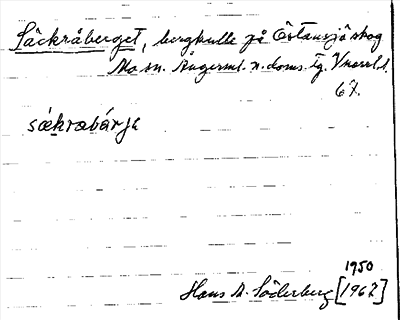 Säckråberget, bergkulle på Östansjö skog
Mo sn. Ångerml. n. doms. tg. Vnorrl. l.
67.
sækrabárje
1950
Hans A. Söderberg [1967]